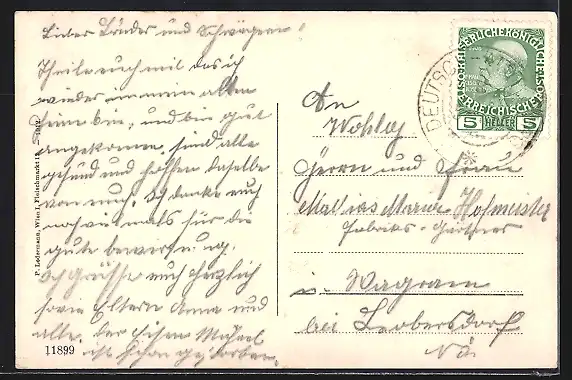 Lieber Bruder und Schwägerin!
Theile euch mit das ich
wieder in mein alten
Heim bin, und bin gut
angekommen, sind alle
gesund und hoffen daselbe
von euch. Ich danke euch
noch vielmals für die
gute bewirtung.
Ich Grüsse euch herzlich
sowie Eltern Anna und
alte. der
ist schon gestorben.
P. Ledermann, Wien I., Fleischmarkt 12
11899
DEUTSCH
KAISERLICHE KÖNIGLICHE
ÖSTERREICHISCHE
5 HELLER 5
An
Wohlg
Herrn und Frau
Mathias Marie Hofmeister
Fabriks-Gärtner
in Wagram
bei Leobersdorf
N.Ö.